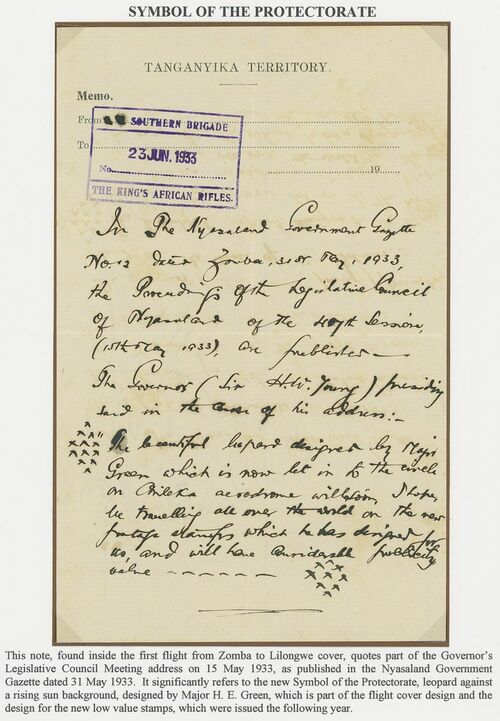 SYMBOL OF THE PROTECTORATE
TANGANYIKA TERRITORY.
Memo.
From
SOUTHERN BRIGADE
To
23 JUN. 1933
No.
19
THE KING'S AFRICAN RIFLES.
In The Nyasaland Government Gazette
No. 12 dated Zomba, 31st May, 1933,
the Proceedings of the Legislative Council
of Nyasaland of the 47th Session,
(15th May 1933), are published —
The Governor (Sir H.W. Young) presiding
said in the course of his address:-
"The beautiful leopard designed by Major
Green which is now let in to the circle
on Chileka aerodrome will soon, I hope,
be travelling all over the world on the new
postage stamps which he has designed for
us, and will have considerable publicity
value - - - - - - -
This note, found inside the first flight from Zomba to Lilongwe cover, quotes part of the Governor's
Legislative Council Meeting address on 15 May 1933, as published in the Nyasaland Government
Gazette dated 31 May 1933. It significantly refers to the new Symbol of the Protectorate, leopard against
a rising sun background, designed by Major H. E. Green, which is part of the flight cover design and the
design for the new low value stamps, which were issued the following year.